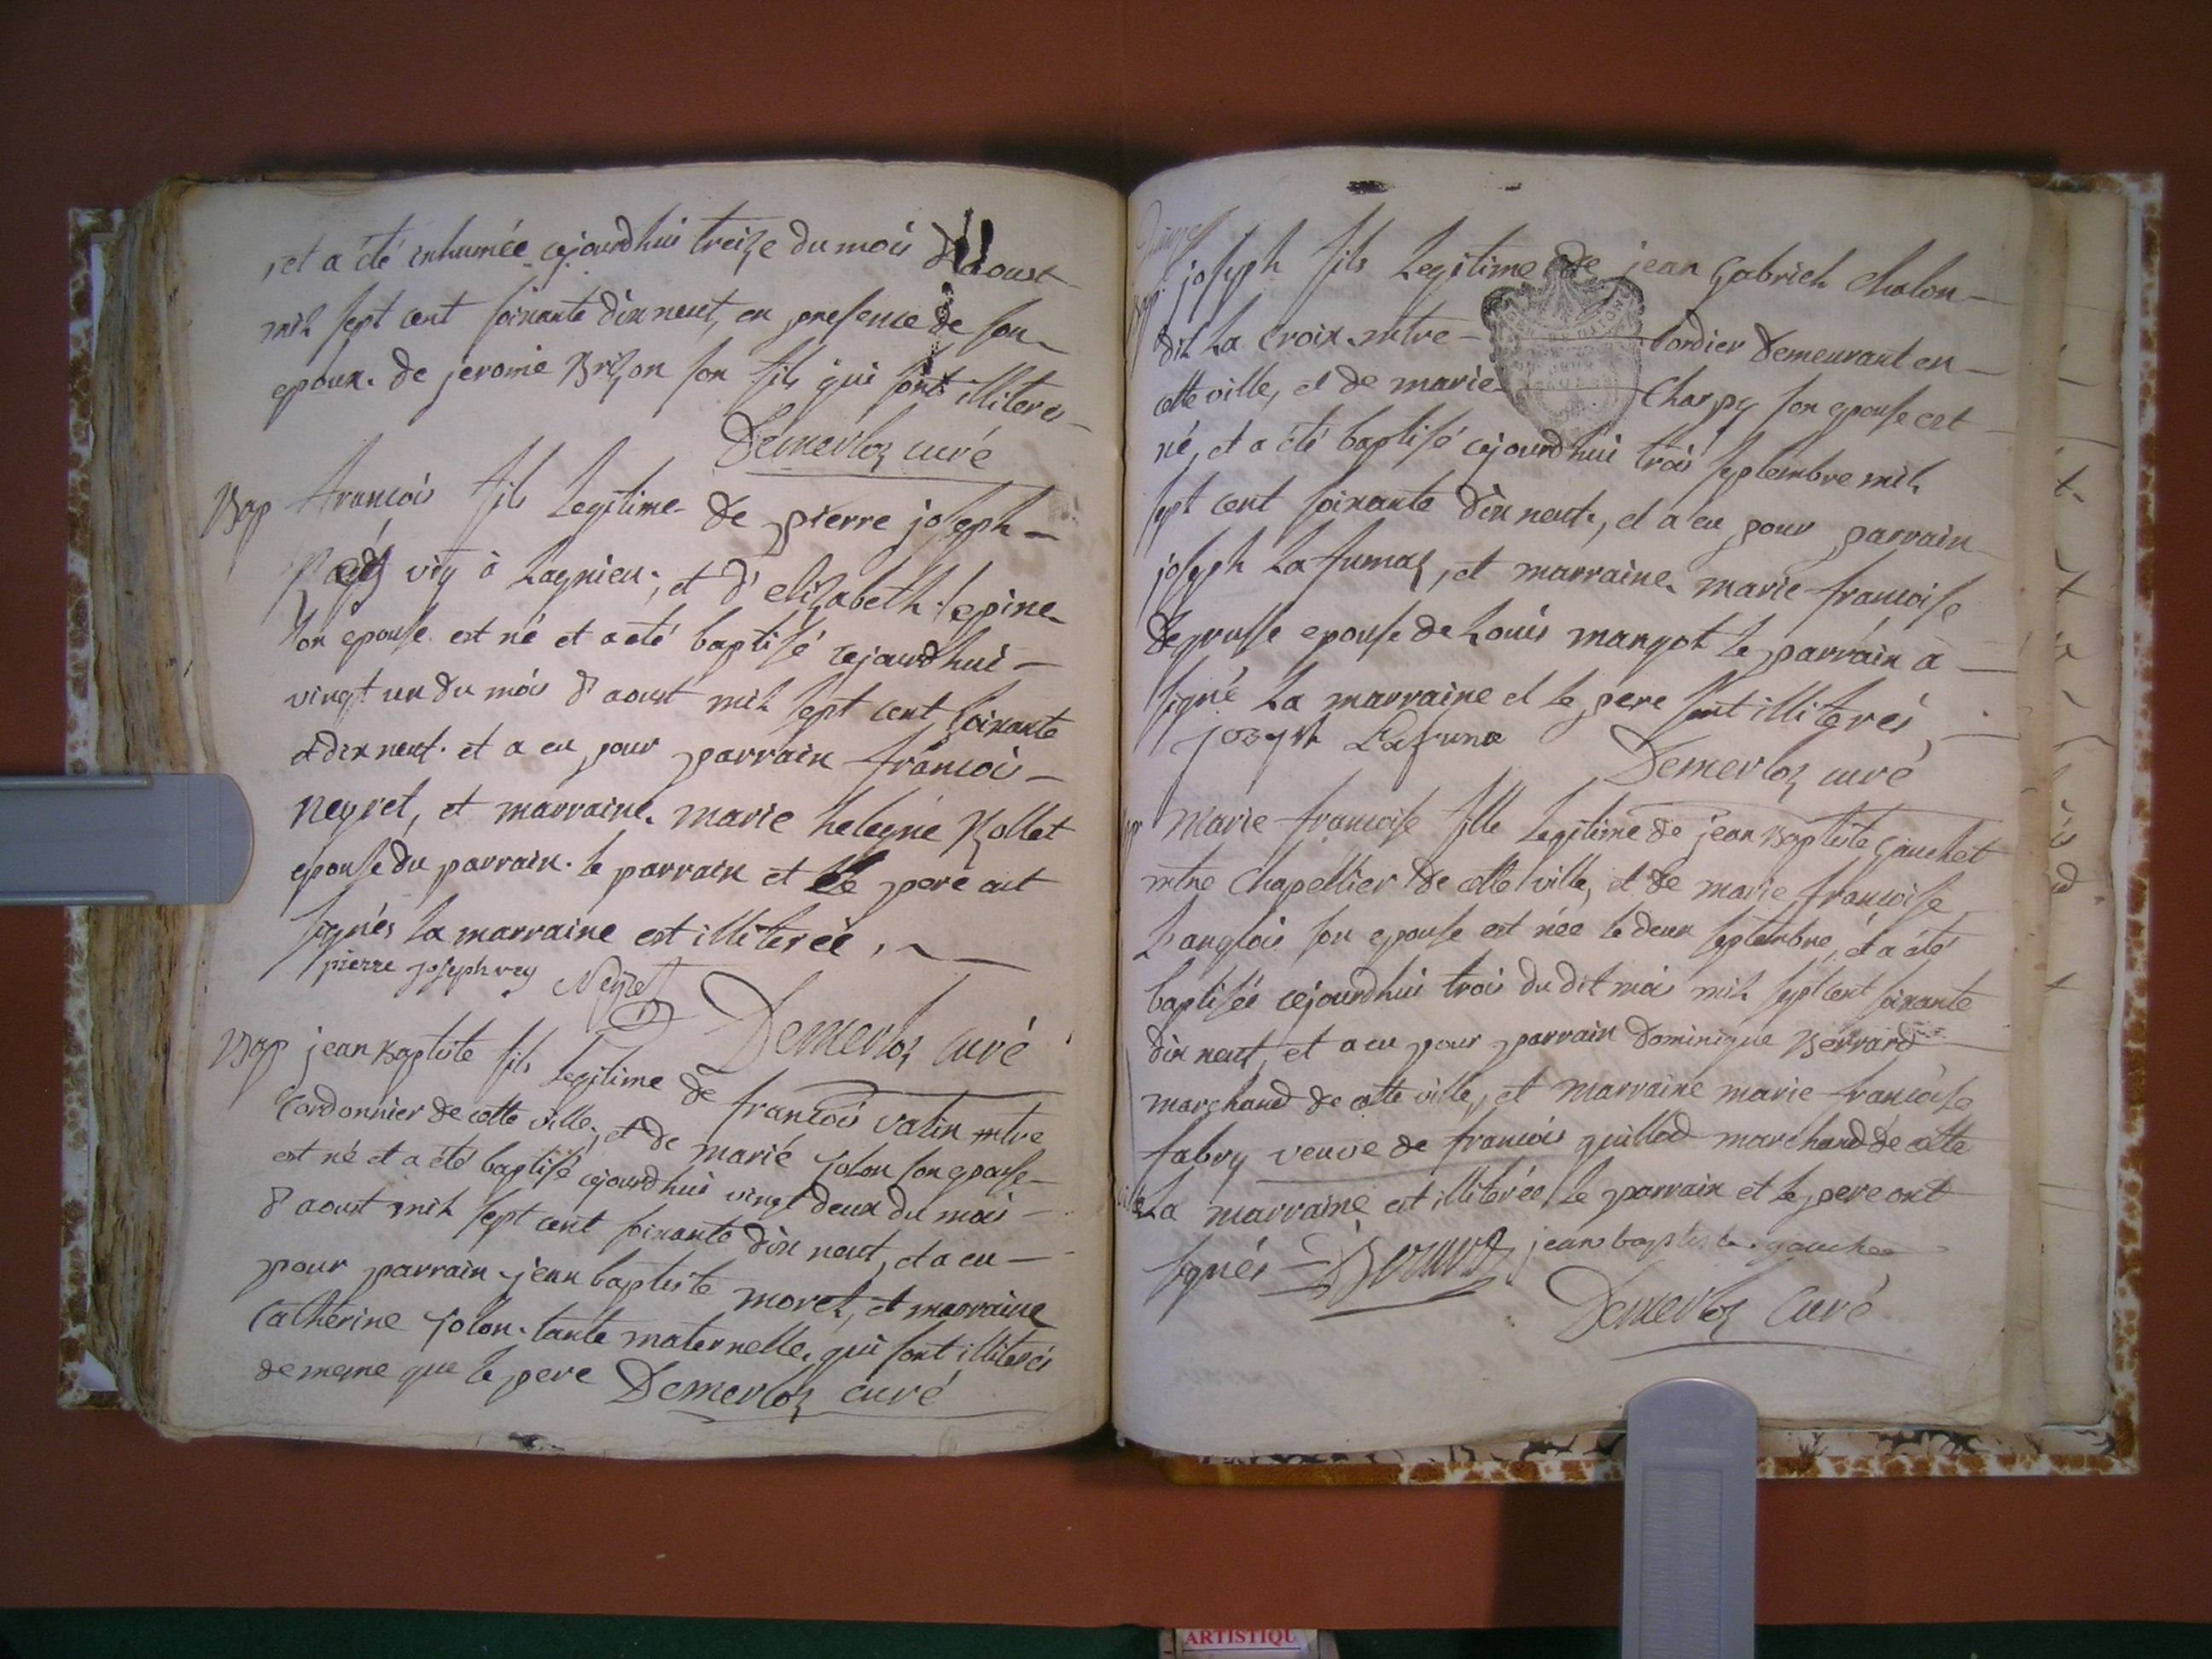 et a été inhumée cejourdhui treize du mois d'aoust
mil sept cent soixante dix neuf, en presence de son
epoux. de jerome Brizon son fils qui sont illiteres
Demerloz curé
Bap françois fils Legitime de pierre joseph
vey à Lagnieu, et d'elizabeth lepine
son epouse est né et a été baptisé cejourdhui
vingt un du mois d'aoust mil sept cent soixante
et dix neuf. et a eu pour parrain françois
neyret, et marraine marie helegne Rollet
epouse du parrain. le parrain et le pere ont
signés La marraine est illiterée.
pierre joseph vey Neyret
Demerloz curé
Bap jean Baptiste fils Legitime de françois vatin mtre
Cordonnier de cette ville, et de marie jolon son epouse
est né et a été baptisé cejourdhui vingt deux du mois
d'aoust mil sept cent soixante dix neuf, et a eu
pour parrain jean baptiste morel, et marraine
Catherine jolon tante maternelle, qui sont illiterés
de meme que le pere Demerloz curé
Bap. joseph fils Legitime de jean Gabriel chalon
dit La Croix mtre Cordier demeurant en
cette ville, et de marie Charpy son epouse est
né, et a été baptisé cejourdhui trois septembre mil
sept cent soixante dix neuf, et a eu pour parrain
joseph Lafumaz, et marraine marie françoise
Degrusse epouse de Louis mangot le parrain à
signé La marraine et le pere sont illiterés
joseph Lafuma
Demerloz curé
Bap Marie françoise fille Legitime de jean Baptiste Gauchet
mtre Chapellier de cette ville, et de marie françoise
Langlois son epouse est née le deux septembre, et a été
baptisée cejourdhui trois du dit mois mil sept cent soixante
dix neuf, et a eu pour parrain Dominique Berrard
marchand de cette ville, et marraine marie françoise
fabry veuve de françois guillod marchand de cette
ville La marraine est illiterée le parrain et le pere ont
signés Berrard jean baptiste gauchet
Demerloz Curé
ARTISTIQU